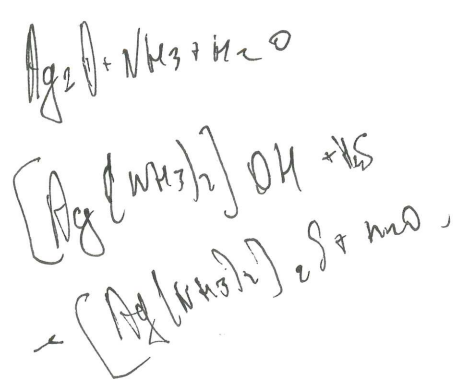 Ag2O + NH3 + H2O
[Ag(NH3)2]OH + H2S
- [Ag(NH3)2]2S + H2O,